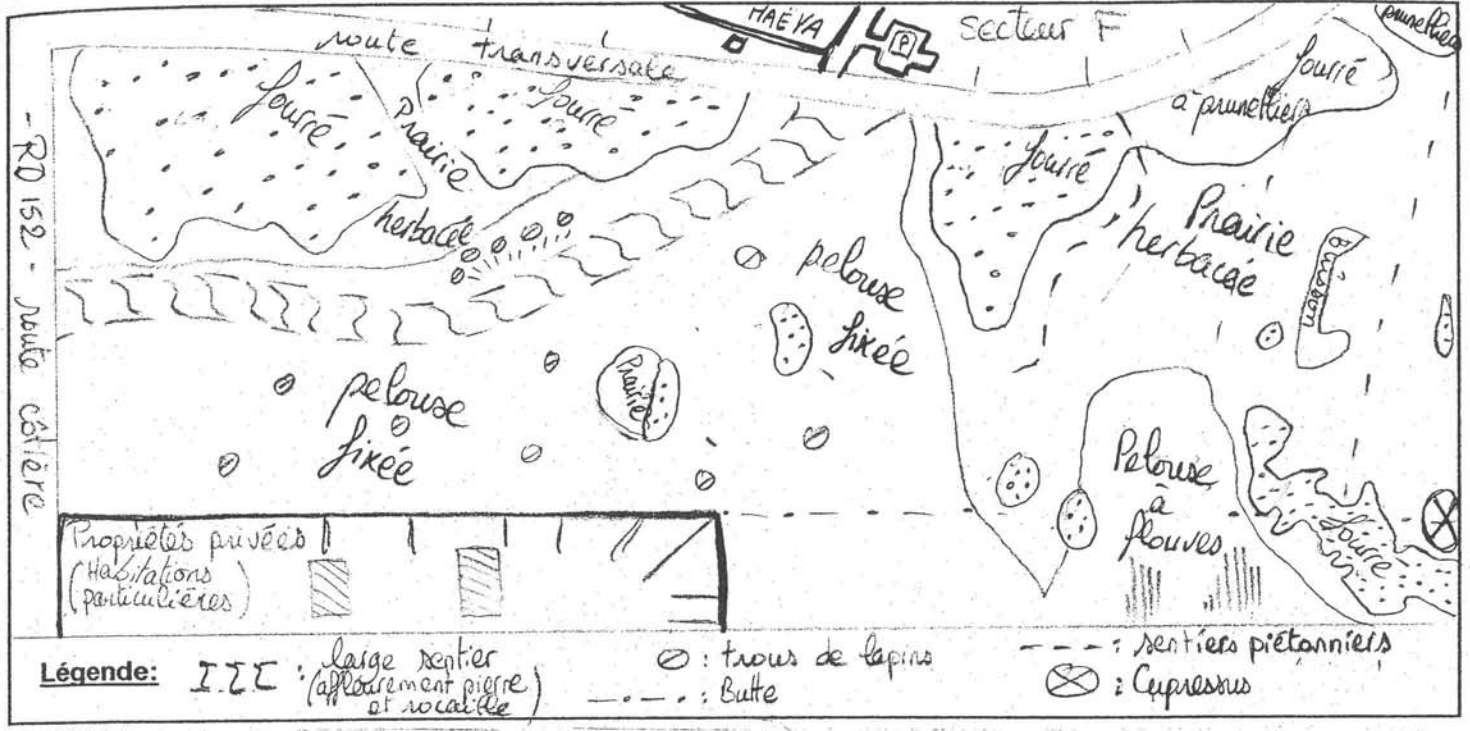 MAËVA
P
secteur F
prunelliers
route transversale
fourré
Prairie
herbacée
fourré
fourré
à prunelliers
fourré
Prairie
herbacée
Buisson
- RD 152 - route côtière
pelouse
fixée
pelouse
fixée
Prairie
Pelouse
à
flouves
fourré
Propriétés privées
(Habitations
particulières)
Légende:
: large sentier
(affleurement pierre
et rocaille)
: trous de lapins
: Butte
: sentiers piétonniers
: Cupressus